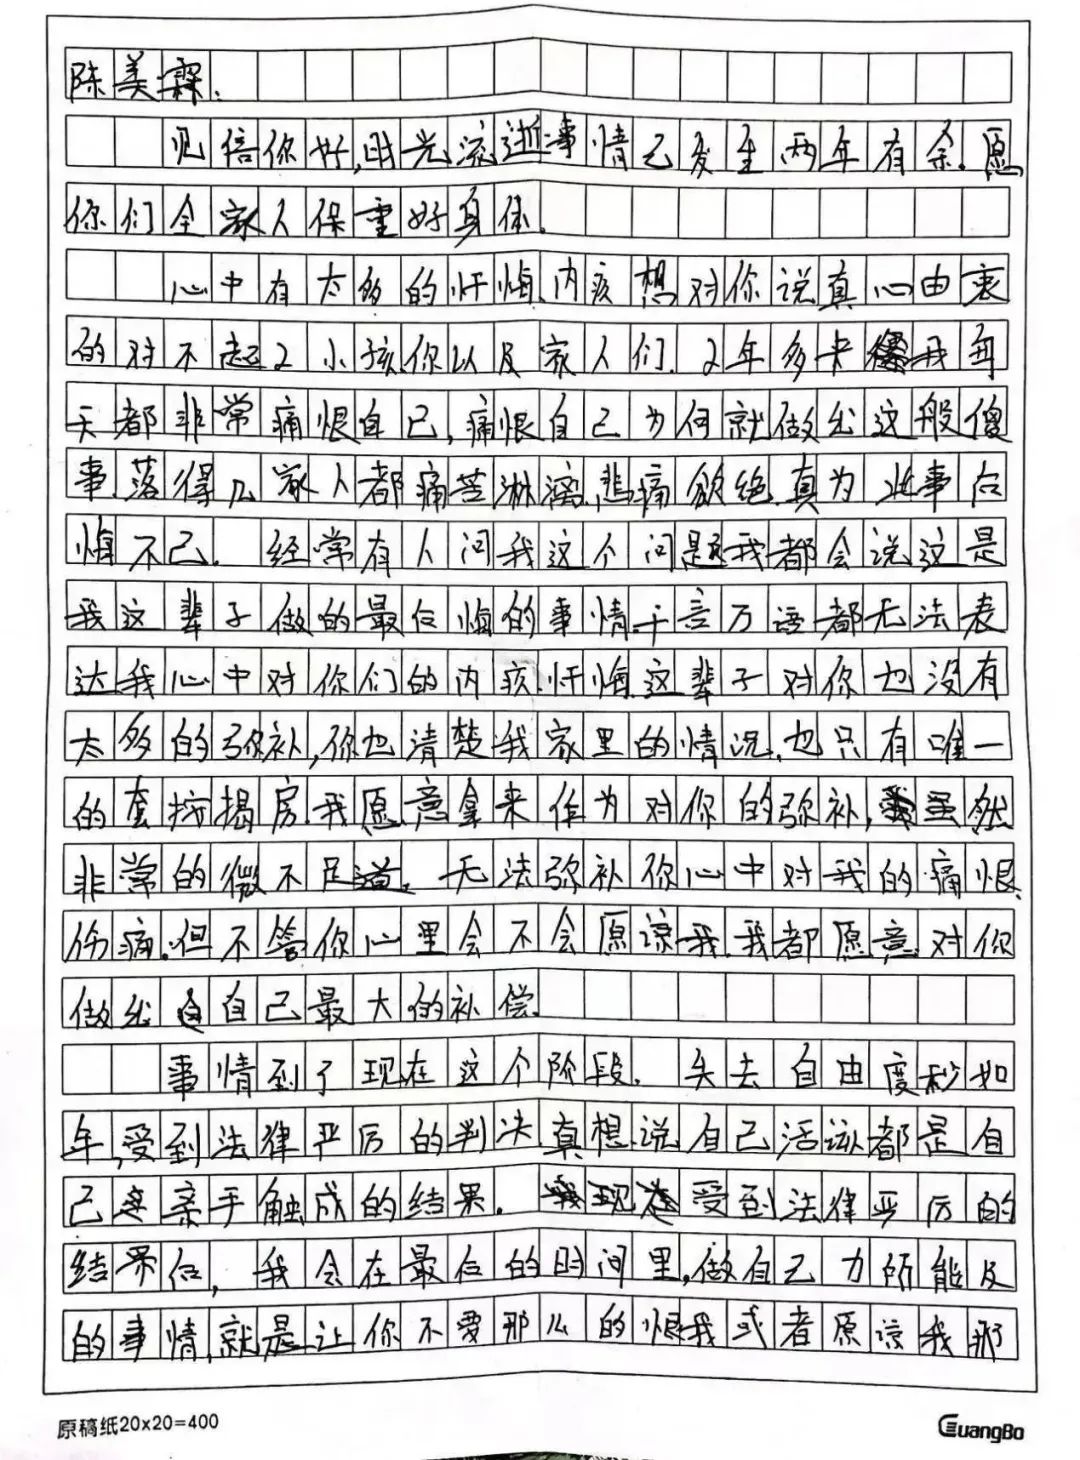 陈美霖:
见信你好,时光流逝事情已发生两年有余.愿
你们全家人保重好身体.
心中有太多的忏悔、内疚想对你说真心由衷
的对不起2小孩、你以及家人们.2年多来我每
天都非常痛恨自己,痛恨自己为何就做出这般傻
事.落得几家人都痛苦淋漓.悲痛欲绝.真为此事后
悔不已. 经常有人问我这个问题我都会说这是
我这辈子做的最后悔的事情.千言万语都无法表
达我心中对你们的内疚.忏悔.这辈子对你也没有
太多的弥补,你也清楚我家里的情况.也只有唯一
的套按揭房.我愿意拿来作为对你的弥补,虽然
非常的微不足道. 无法弥补你心中对我的痛恨、
伤痛.但不管你心里会不会原谅我.我都愿意对你
做出自己最大的补偿.
事情到了现在这个阶段. 失去自由度秒如
年,受到法律严厉的判决.真想说自己活该都是自
己亲手触成的结果. 受到法律严厉的
结果后, 我会在最后的时间里,做自己力所能及
的事情,就是让你不要那么的恨我或者原谅我那
原稿纸20×20=400
GuangBo